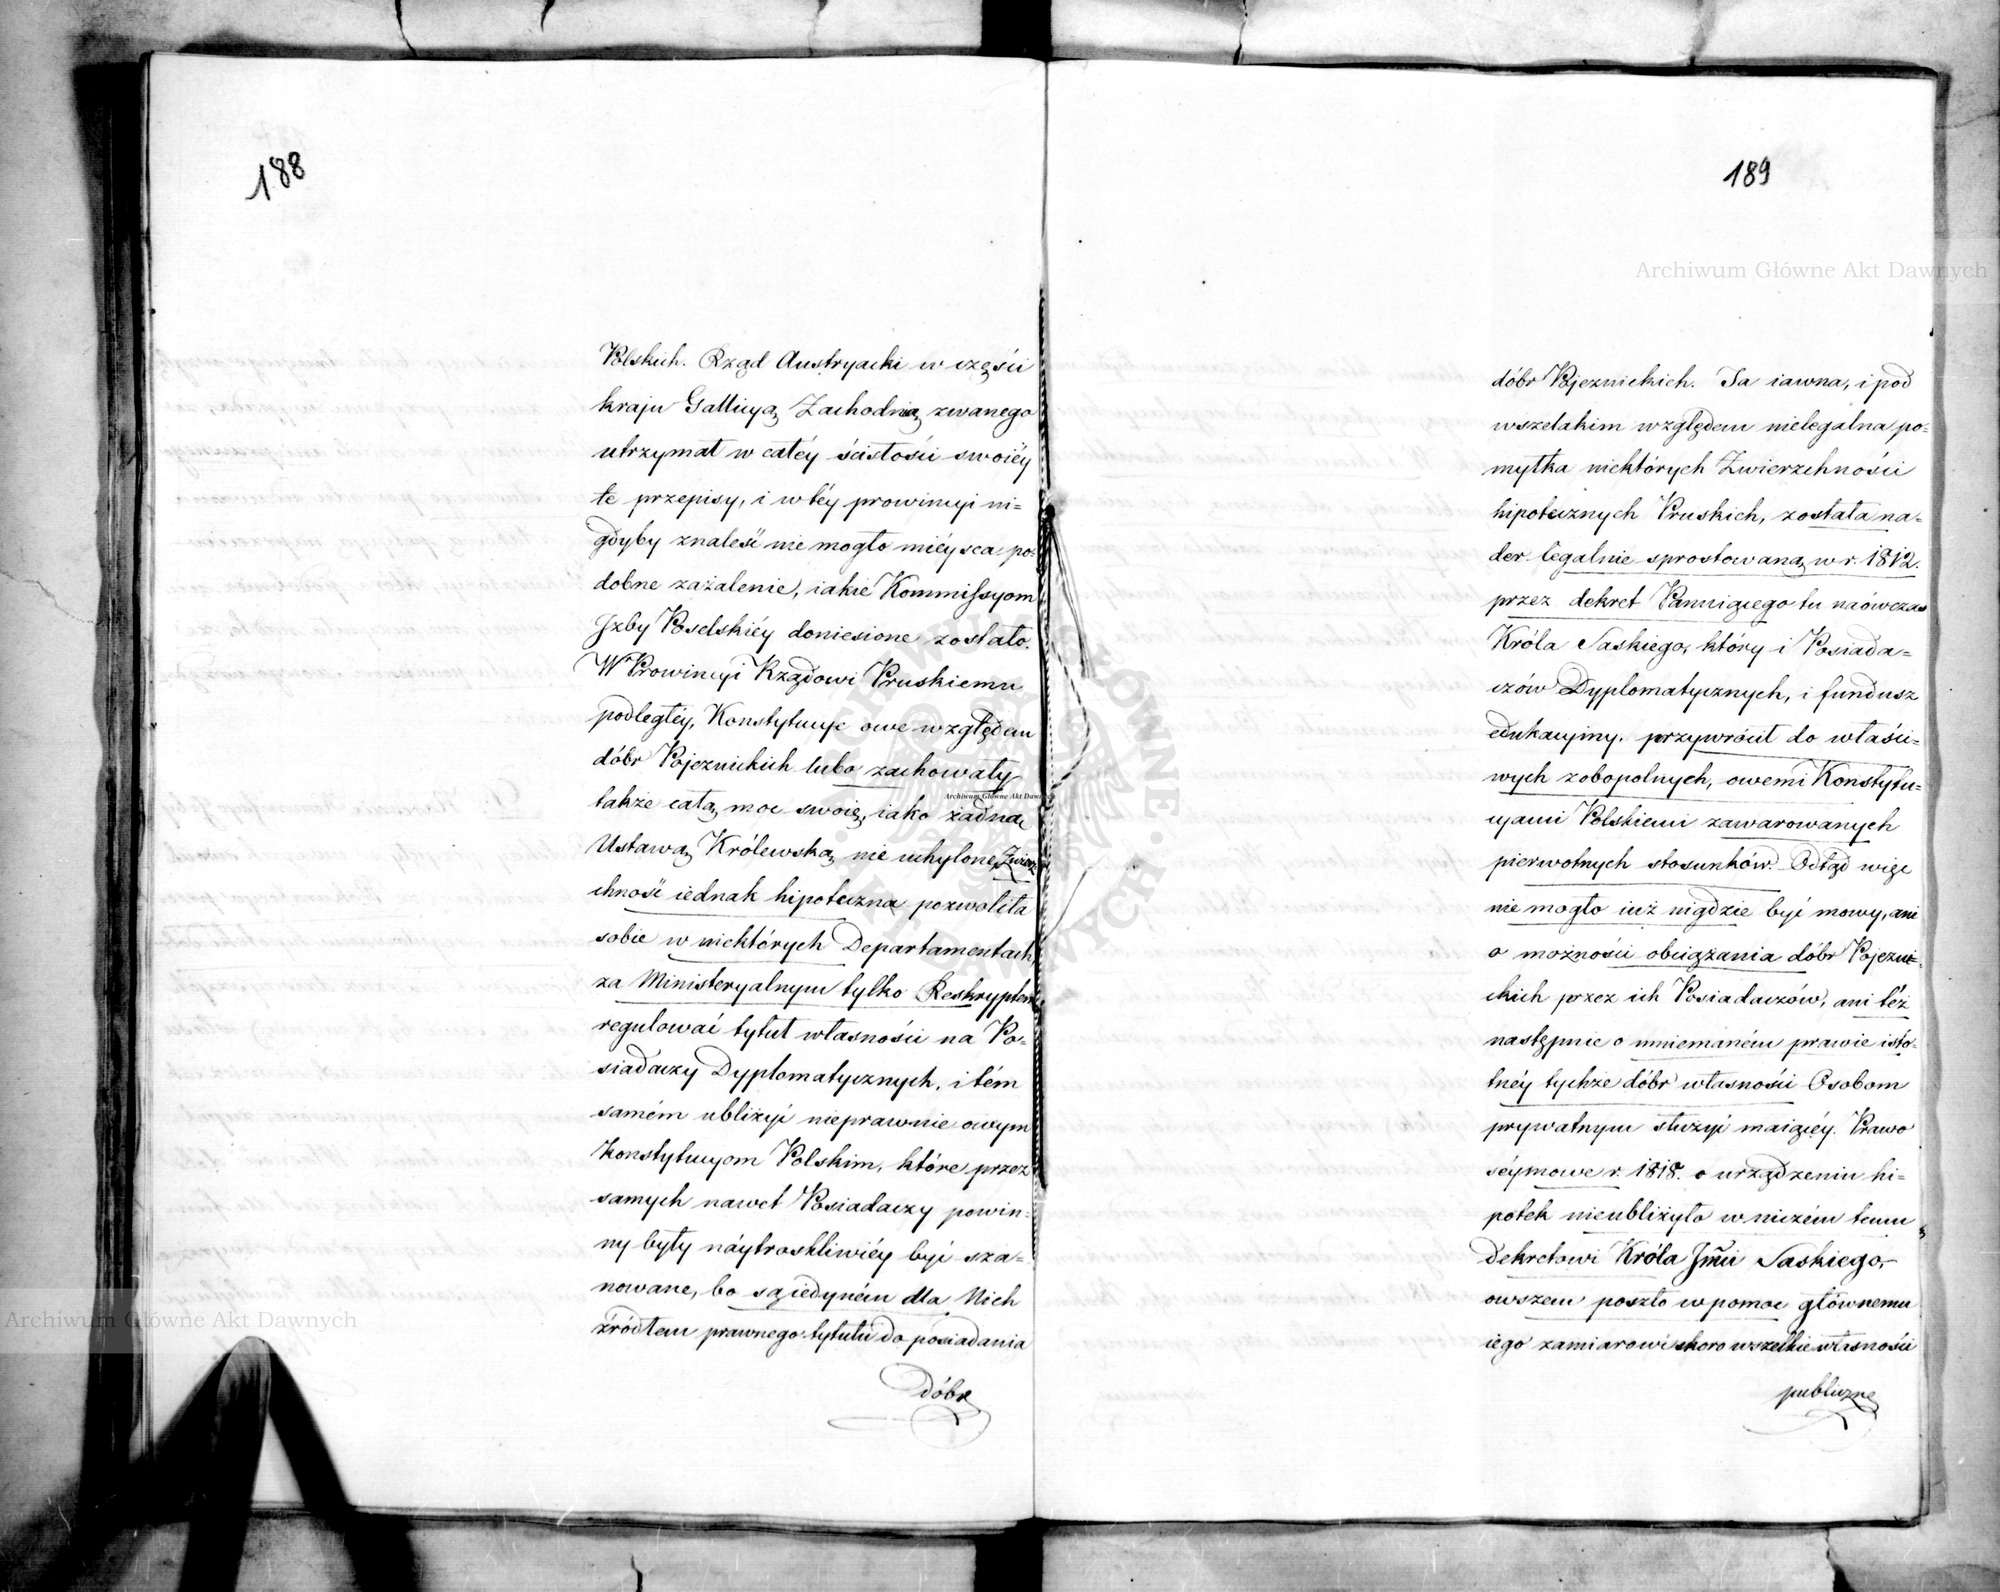 188
Polskich. Rząd Austryacki w części
kraju Gallicyą Zachodnią zwanego
utrzymał w całéy ścisłości swoiéy
te przepisy, i w téy prowincyi ni=
gdyby znaleść nie mogło miéysca po=
dobne zażalenie, iakie Kommissyom
Izby Poselskiéy doniesione zostało.
W Prowincyi Rządowi Pruskiemu
podległéy, Konstytucye owe względem
dóbr Pojezuickich lubo zachowały
także całą moc swoię, iako żadną
Ustawą Królewską nie uchylone, Zwierz
chność iednak hipoteczna pozwoliła
sobie w niektórych Departamentach,
za Ministeryalnym tylko Reskryptem
regulować tytuł własności na Po=
siadaczy Dyplomatycznych, i tém
samém ubliżyć nieprawnie owym
Konstytucyom Polskim, które przez
samych nawet Posiadaczy powin=
ny były náytroskliwiéy być sza=
nowane, bo są iedyném dla Nich
źródłem prawnego tytułu do posiadania
dóbr
189
dóbr Pojezuickich. Ta iawna, i pod
wszelakim względem nielegalna po=
myłka niektórych Zwierzchności
hipotecznych Pruskich, została na=
der legalnie sprostowaną w r. 1812.
przez dekret Panuiącego tu naówczas
Króla Saskiego, który i Posiada=
czów Dyplomatycznych, i fundusz
edukacyiny, przywrócił do właści=
wych zobopolnych, owemi Konstytu=
cyami Polskiemi zawarowanych
pierwotnych stosunków. Odtąd więc
nie mogło iuż nigdzie być mowy, ani
o możności obciążania dóbr Pojezui=
ckich przez ich Posiadaczów, ani téż
następnie o mniemaném prawie isto=
tnéy tychże dóbr własności Osobom
prywatnym służyć maiącéy. Prawo
séymowe r. 1818. o urządzeniu hi=
potek nieubliżyło w niczém temu
dekretowi Króla Jmci Saskiego,
owszem poszło w pomoc głównemu
iego zamiarowi skoro wszelkie własności
publiczne
Archiwum Główne Akt Dawnych
Archiwum Główne Akt Dawnych
Archiwum Główne Akt Dawnych